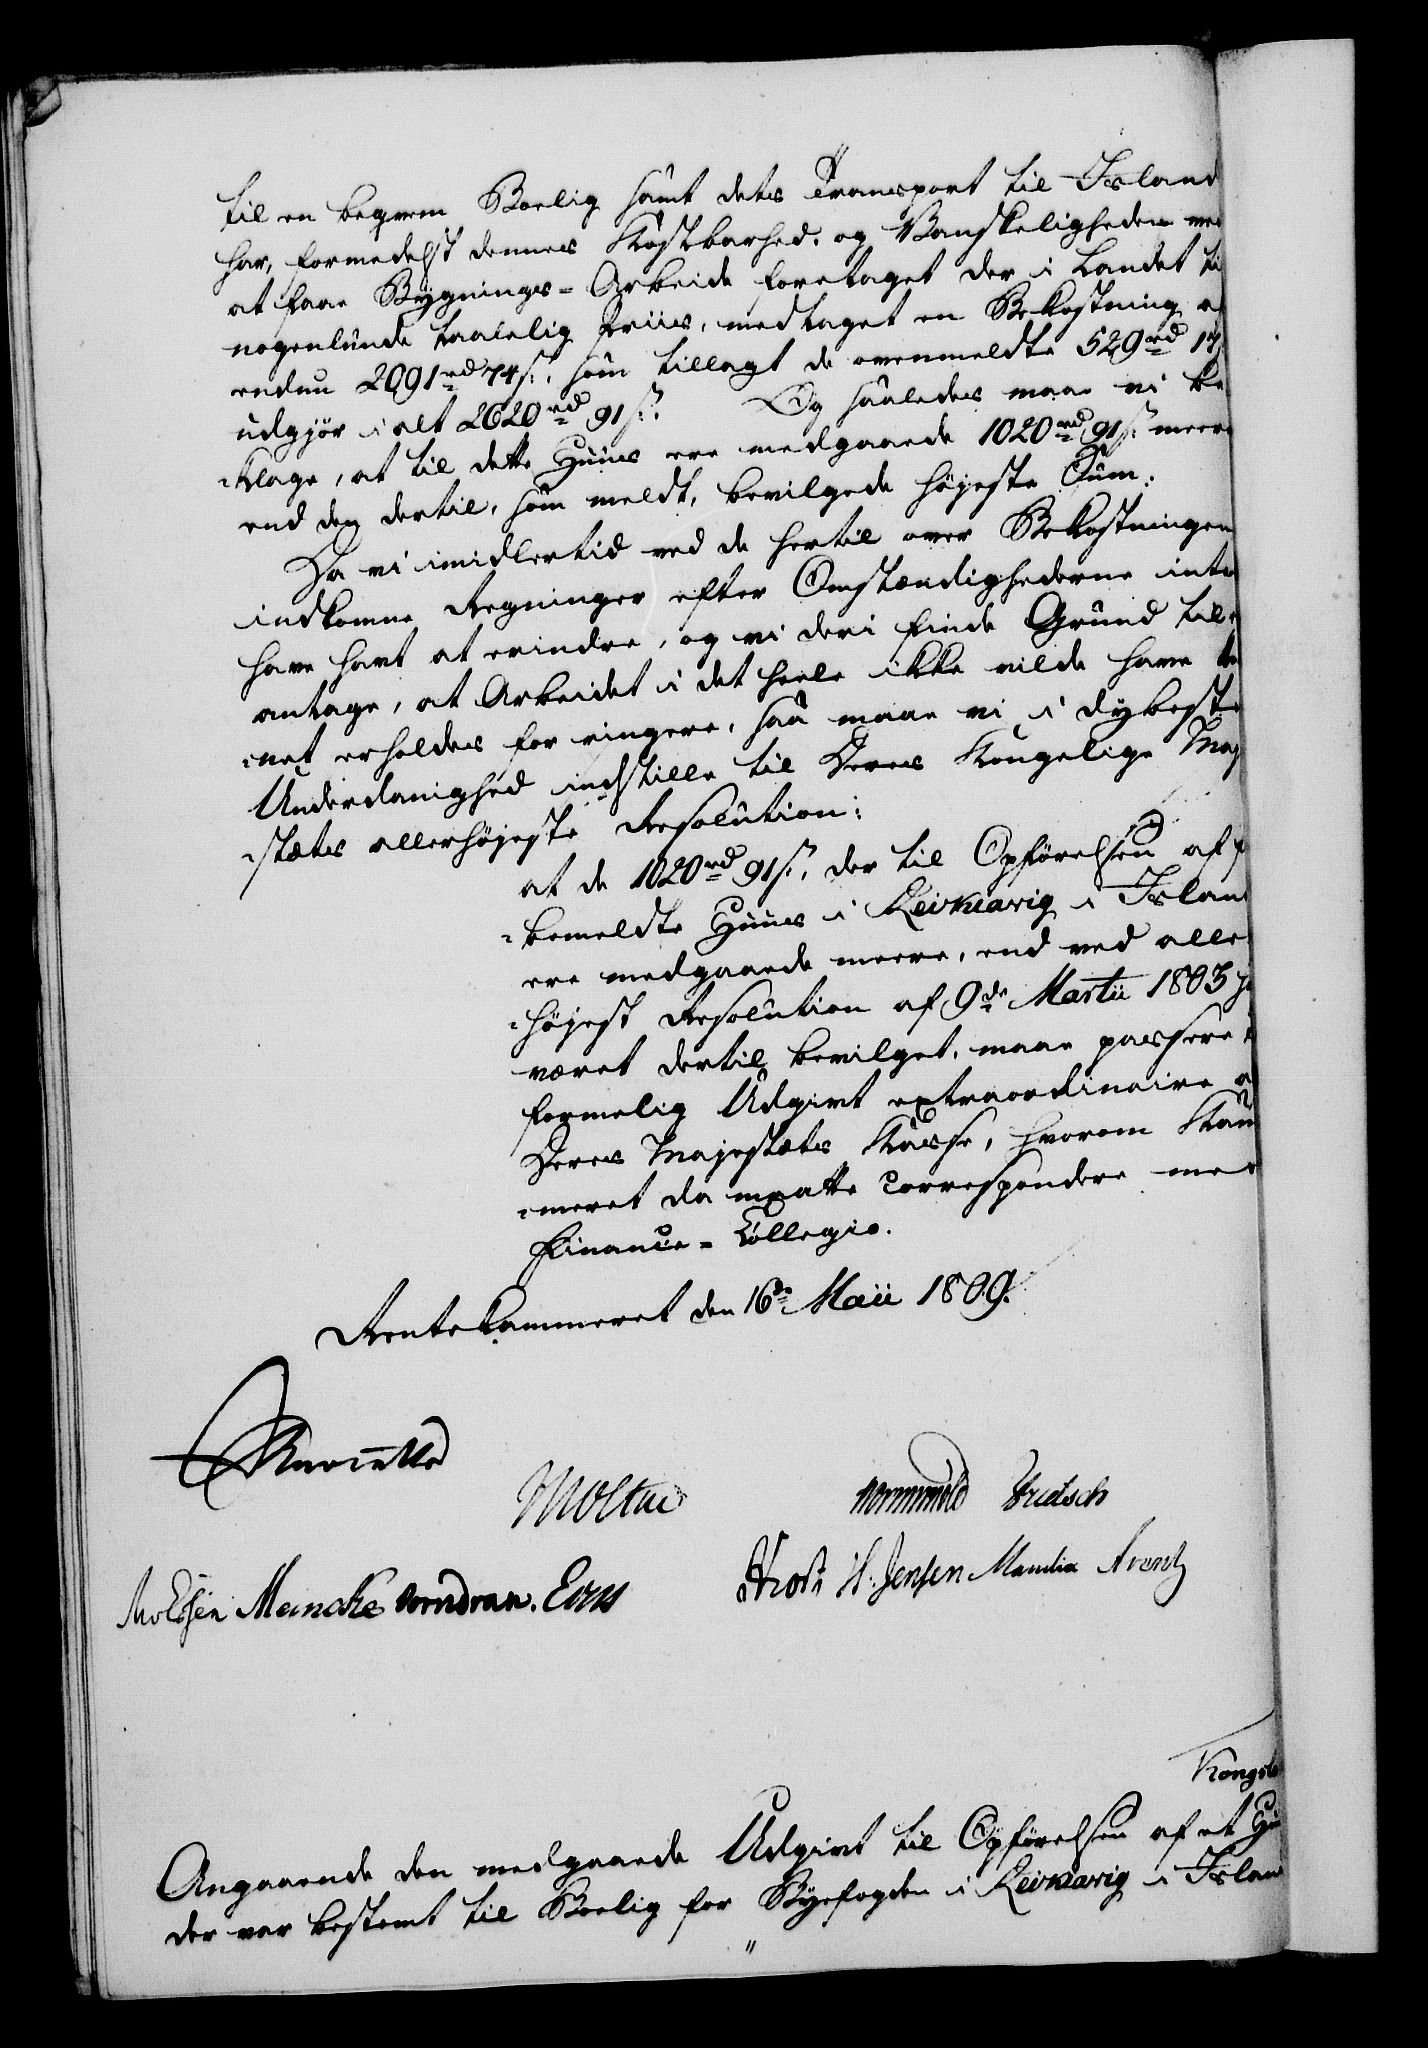 til en beqvem Boelig samt dets Transport til Island
har, formedelst dennes Kostbarhed, og Vanskeligheden ved
at faae Bygnings-Arbeide foretaget der i Landet til
nogenlunde taalelig Priis, medtaget en Bekostning af
endnu 2091 rd 74 s., som tillagt de ovenmeldte 529 rd 17
udgjör i alt 2620 rd 91 s. Og saaledes maae vi be-
-klage, at til dette Huus ere medgaaede 1020 rd 91 s. meere
end den dertil, som meldt, bevilgede höjeste Sum.
Da vi imidlertid ved de hertil over Bekostningen
indkomne Regninger efter Omstændighederne intet
have havt at erindre, og vi deri finde Grund til at
antage, at Arbeidet i det heele ikke vilde have kun-
-net erholdes for ringere, saa maae vi i dybeste
Underdanighed indstille til Deres Kongelige Maj-
-stæts allerhöjeste Resolution:
at de 1020 rd 91 s., der til Opförelsen af
-bemeldte Huus i Reikiavig i Island
ere medgaaede meere, end ved aller-
-höjest Resolution af 9de Martii 1803 ha
været dertil bevilget, maae passere til
formelig Udgivt extraordinaire af
Deres Majestæts Kasse, hvorom Kam-
-meret da maatte correspondere med
Finance-Collegio.
Rentekammeret den 16de Maii 1809.
Moltke
Wormskiold Fridsch
Meincke Vorndran. Evers H. Jensen Manthei Arentz
Kongsb
Angaaende den medgaaede Udgivt til Opförelsen af et Hu
der var bestemt til Boelig for Byefogden i Reikiavig i Island